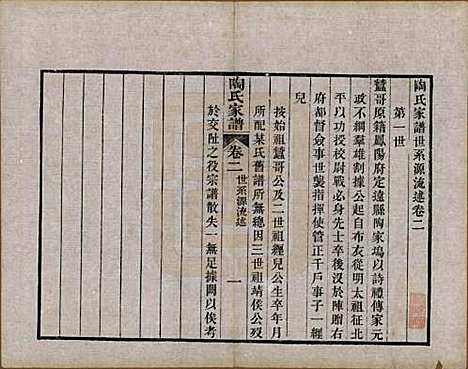 陶氏家譜世系源流述卷二
第一世
蠶哥原籍鳳陽府定遠縣陶家塢以詩禮傳家元
政不綱羣雄割據公起自布衣從明太祖征北
平以功授校尉戰必身先士卒後沒於陣贈右
府都督僉事世襲指揮使管正千戶事子一經
兒
按始祖蠶哥公及二世祖經兒公生卒年月
所配某氏舊譜所無總因三世祖靖侯公歿
陶氏家譜
卷二
世系源流述
一
於交阯之役宗譜散失一無足據闕以俟考